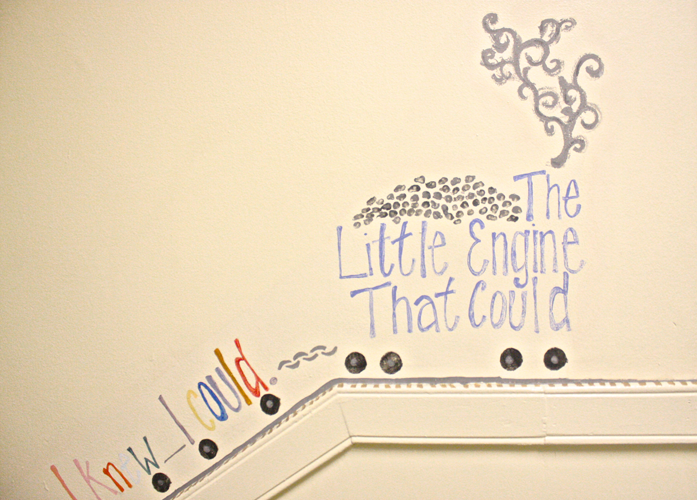 The
Little Engine
That Could
I Know_I could.